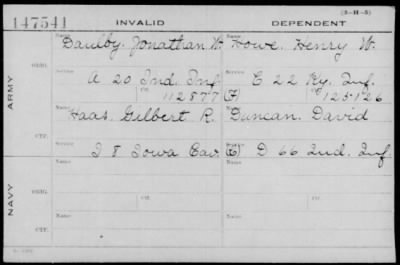 (3-H-5)
147541 INVALID DEPENDENT
Name Daulby, Jonathan W. Name Howe, Henry W.
ARMY
ORIG. Service A 20 Ind. Inf Service E 22 Ky. Inf.
Ctf. 112877 (F) Ctf. 125126
Name Haas, Gilbert R. Name Duncan, David
CTF. Service I 8 Iowa Cav. (C) Service D 66 Ind. Inf
NAVY
Name Name
ORIG. Service Ctf. Service Ctf.
Name Name
CTF. Service Service